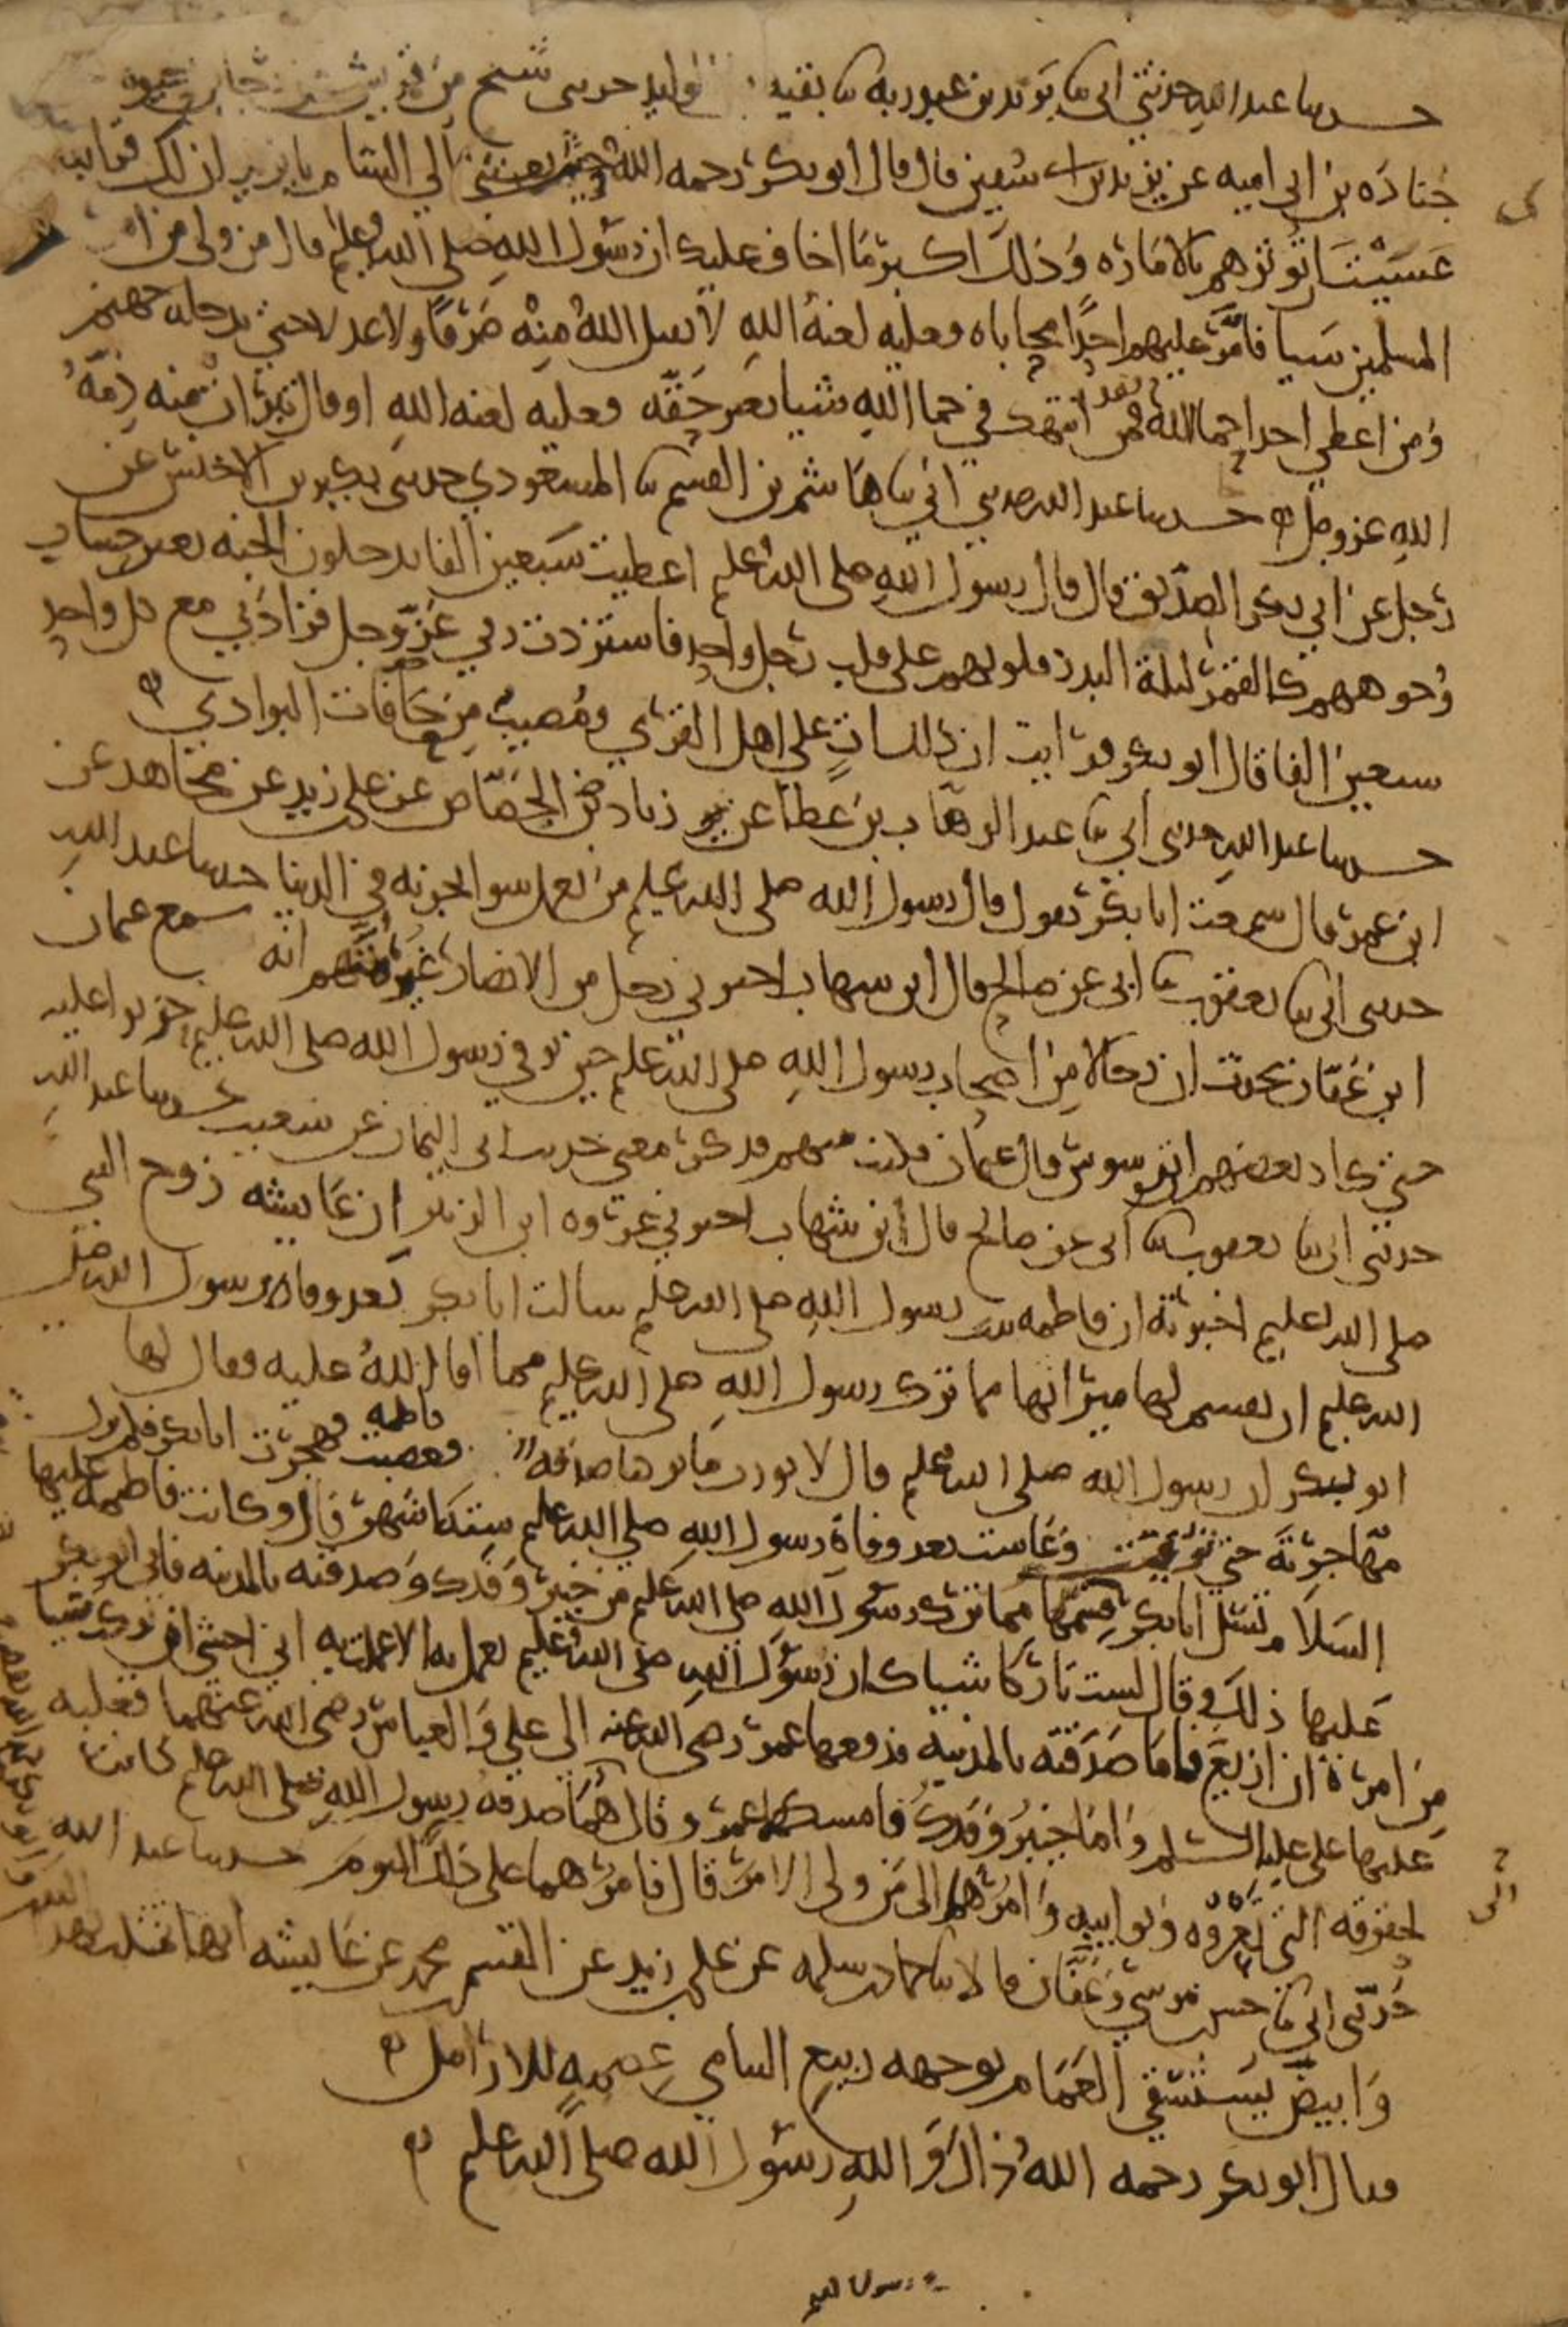 حدثنا عبد الله حدثني ابي ثنا يزيد بن عبد ربه ثنا بقية بن الوليد حدثني شيخ من قريش عن رجا بن حيوه
جنادة بن ابي اميه عن يزيد بن ابي سفين قال قال ابو بكر رحمه الله حين بعثني الي الشام يا يزيد ان لك قرابه
عسيت ان توثرهم بالاماره وذلك اكبر ما اخاف عليك ان رسول الله صلى الله عليه وسلم قال من ولي من امر
المسلمين شيا فامر عليهم احدا محاباه فعليه لعنة الله لا يقبل الله منه صرفا ولا عدلا حتى يدخله جهنم
ومن اعطي احدا حما الله فقد انتهك في حما الله شيا بغير حقه فعليه لعنه الله او قال تبرات منه ذمة
الله عز وجل حدثنا عبد الله حدثني ابي ثنا هاشم بن القسم ثنا المسعودي حدثني بكير بن الاخنس عن
رجل عن ابي بكر الصديق قال قال رسول الله صلى الله عليه وسلم اعطيت سبعين الفا يدخلون الجنه بغير حساب
وجوههم كالقمر ليلة البدر قلوبهم على قلب رجل واحد فاستزدت ربي عز وجل فزادني مع كل واحد
سبعين الفا قال ابو بكر فرايت ان ذلك ات على اهل القرى ومصيب من حافات البوادي
حدثنا عبد الله حدثني ابي ثنا عبد الوهاب بن عطا عن زياد الجصاص عن علي بن زيد عن مجاهد عن
ابن عمر قال سمعت ابا بكر يقول قال رسول الله صلى الله عليه وسلم من يعمل سوا يجز به في الدنيا حدثنا عبد الله
حدثني ابي ثنا يعقوب ثنا ابي عن صالح قال ابن شهاب اخبرني رجل من الانصار غير متهم انه سمع عثمان
ابن عفان يحدث ان رجالا من اصحاب رسول الله صلى الله عليه وسلم حين توفي رسول الله صلى الله عليه وسلم حزنوا عليه
حتى كاد بعضهم ان يوسوس قال عثمان فكنت منهم فذكر معنى حديث ابي اليمان عن شعيب حدثنا عبد الله
حدثني ابي ثنا يعقوب ثنا ابي عن صالح قال ابن شهاب اخبرني عروه ابن الزبير ان عايشه زوج النبي
صلى الله عليه وسلم اخبرته ان فاطمه بنت رسول الله صلى الله عليه وسلم سالت ابا بكر بعد وفاة رسول الله صلى
الله عليه وسلم ان يقسم لها ميراثها مما ترك رسول الله صلى الله عليه وسلم مما افا الله عليه فقال لها
ابو بكر ان رسول الله صلى الله عليه وسلم قال لا نورث ما تركنا صدقه فغضبت فاطمه فهجرت ابا بكر فلم تزل
مهاجرته حتى توفيت وعاشت بعد وفاة رسول الله صلى الله عليه وسلم ستة اشهر قال وكانت فاطمة عليها
السلام تسل ابا بكر قسمها مما ترك رسول الله صلى الله عليه وسلم من خيبر وفدك وصدقته بالمدينه فابى ابو بكر
عليها ذلك وقال لست تاركا شيا كان رسول الله صلى الله عليه وسلم يعمل به الا عملت به اني اخشى ان تركت شيا
من امره ان ازيغ فاما صدقته بالمدينه فدفعها عمر رضي الله عنه الى علي والعباس رضي الله عنهما فغلبه
عليها علي عليه السلم واما خيبر وفدك فامسكهما عمر وقال هما صدقة رسول الله صلى الله عليه وسلم كانتا
لحقوقه التي تعروه ونوايبه وامرهما الى من ولي الامر قال فامرهما على ذلك اليوم حدثنا عبد الله
حدثني ابي ثنا حسن بن موسى وعفان قالا ثنا حماد بن سلمه عن علي بن زيد عن القسم بن محمد عن عايشه انها تمثلت بهذا البيت
وابيض يستسقى الغمام بوجهه ربيع اليتامى عصمة للارامل
فقال ابو بكر رحمه الله ذاك والله رسول الله صلى الله عليه وسلم